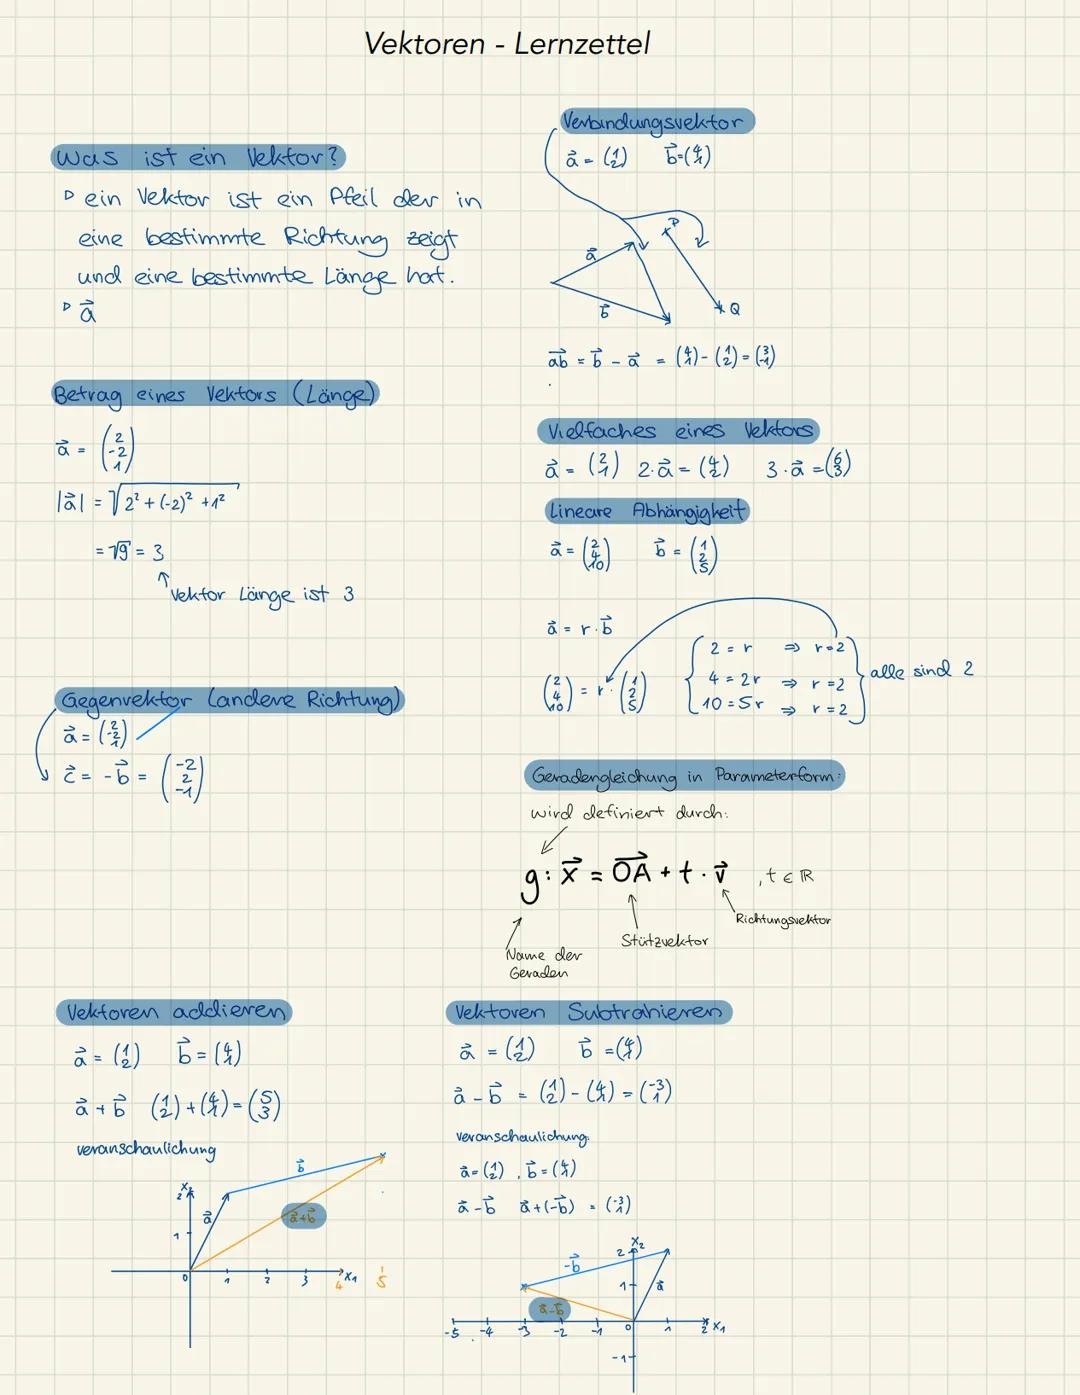 Vektoren - Lernzettel
Was ist ein Vektor?
▷ ein Vektor ist ein Pfeil der in
eine bestimmte Richtung zeigt
und eine bestimmte Länge hat.
▷ a⃗
Betrag eines Vektors (Länge)
a⃗ = (2 -2 1)
|a⃗| = √2² + (-2)² + 1²
= √9 = 3
Vektor Länge ist 3
Gegenvektor (andere Richtung)
a⃗ = (2 -2 1)
c⃗ = -b⃗ = (-2 2 -1)
Verbindungsvektor
a⃗ = (1 2) b⃗ = (4 1)
a⃗
b⃗
P
Q
ab⃗ = b⃗ - a⃗ = (4 1) - (1 2) = (3 -1)
Vielfaches eines Vektors
a⃗ = (2 1) 2·a⃗ = (4 2) 3·a⃗ = (6 3)
Lineare Abhängigkeit
a⃗ = (2 4 10) b⃗ = (1 2 5)
a⃗ = r·b⃗
(2 4 10) = r·(1 2 5)
2 = r ⇒ r=2
4 = 2r ⇒ r=2
10 = 5r ⇒ r=2
alle sind 2
Geradengleichung in Parameterform:
wird definiert durch:
g: x⃗ = OA⃗ + t · v⃗ , t ∈ ℝ
Richtungsvektor
Stützvektor
Name der
Geraden
Vektoren addieren
a⃗ = (1 2) b⃗ = (4 1)
a⃗ + b⃗ (1 2) + (4 1) = (5 3)
veranschaulichung
x₂
2
1
0 1 2 3 4 x₁ 5
a⃗
b⃗
a⃗+b⃗
Vektoren Subtrahieren
a⃗ = (1 2) b⃗ = (4 1)
a⃗ - b⃗ = (1 2) - (4 1) = (-3 1)
veranschaulichung:
a⃗ = (1 2) , b⃗ = (4 1)
a⃗ - b⃗ a⃗ + (-b⃗) = (-3 1)
x₂
2
1
-b⃗
a⃗
a⃗-b⃗
-5 -4 -3 -2 -1 0 1 2 x₁
-1